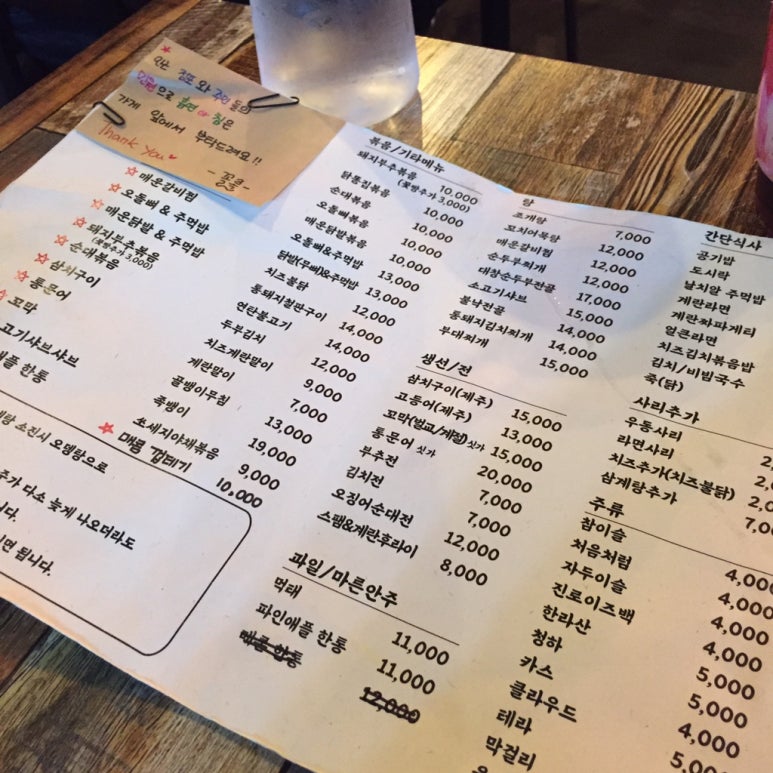 인근 점포와 주민들의
민원으로 흡연 or 침은
가게 앞에서 부탁드려요!!
Thank you
매운갈비찜
오돌뼈 & 주먹밥
매운닭발 & 주먹밥
돼지부추볶음
(꽃빵추가 3,000)
순대볶음
삼치구이
통문어
꼬막
고기샤브샤브
애플 한통
탕 소진시 오뎅탕으로
주가 다소 늦게 나오더라도
니다.
시면 됩니다.
볶음/기타메뉴
돼지부추볶음 10,000
(꽃빵추가 3,000)
닭똥집볶음 10,000
순대볶음 10,000
오돌뼈볶음 10,000
매운닭발볶음 10,000
오돌뼈&주먹밥 13,000
닭발(무뼈)&주먹밥 13,000
치즈불닭 14,000
통돼지철판구이 14,000
연탄불고기 12,000
두부김치 9,000
치즈계란말이 7,000
계란말이 13,000
골뱅이무침 19,000
쪽뱅이 9,000
쏘세지야채볶음 10,000
매콤 껍데기
탕
조개탕 7,000
꼬치어묵탕 12,000
매운갈비찜 12,000
순두부찌개 12,000
대창순두부전골 17,000
소고기샤브 15,000
불낙전골 14,000
통돼지김치찌개 14,000
부대찌개 15,000
생선/전
삼치구이(제주) 15,000
고등어(제주) 13,000
꼬막(벌교/계절) 싯가 15,000
통문어 싯가 20,000
부추전 7,000
김치전 7,000
오징어순대전 12,000
스팸&계란후라이 8,000
파일/마른안주
먹태 11,000
파인애플 한통 11,000
매콤 한통 12,000
간단식사
공기밥
도시락
날치알 주먹밥
계란라면
계란짜파게티
얼큰라면
치즈김치볶음밥
김치/비빔국수
죽(닭)
사리추가
우동사리
라면사리
치즈추가(치즈불닭)
삼계탕추가
주류
참이슬 4,000
처음처럼 4,000
자두이슬 4,000
진로이즈백 4,000
한라산 5,000
청하 5,000
카스 4,000
클라우드
테라
막걸리